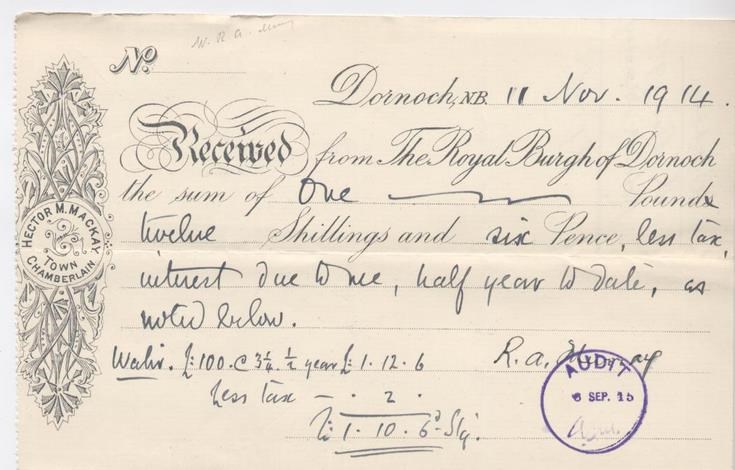 W. R. A.
No.
Dornoch, N.B. 11 Nov. 1914.
Received from The Royal Burgh of Dornoch
the sum of One Pounds
twelve Shillings and six Pence, less tax,
interest due to me, half year to date, as
noted below.
£100 @ 3¼ ½ year £1. 12. 6 R. A.
Less tax — . 2 .
£1. 10. 6d Stg.
HECTOR M. MACKAY
TOWN
CHAMBERLAIN
AUDIT
6 SEP. 15